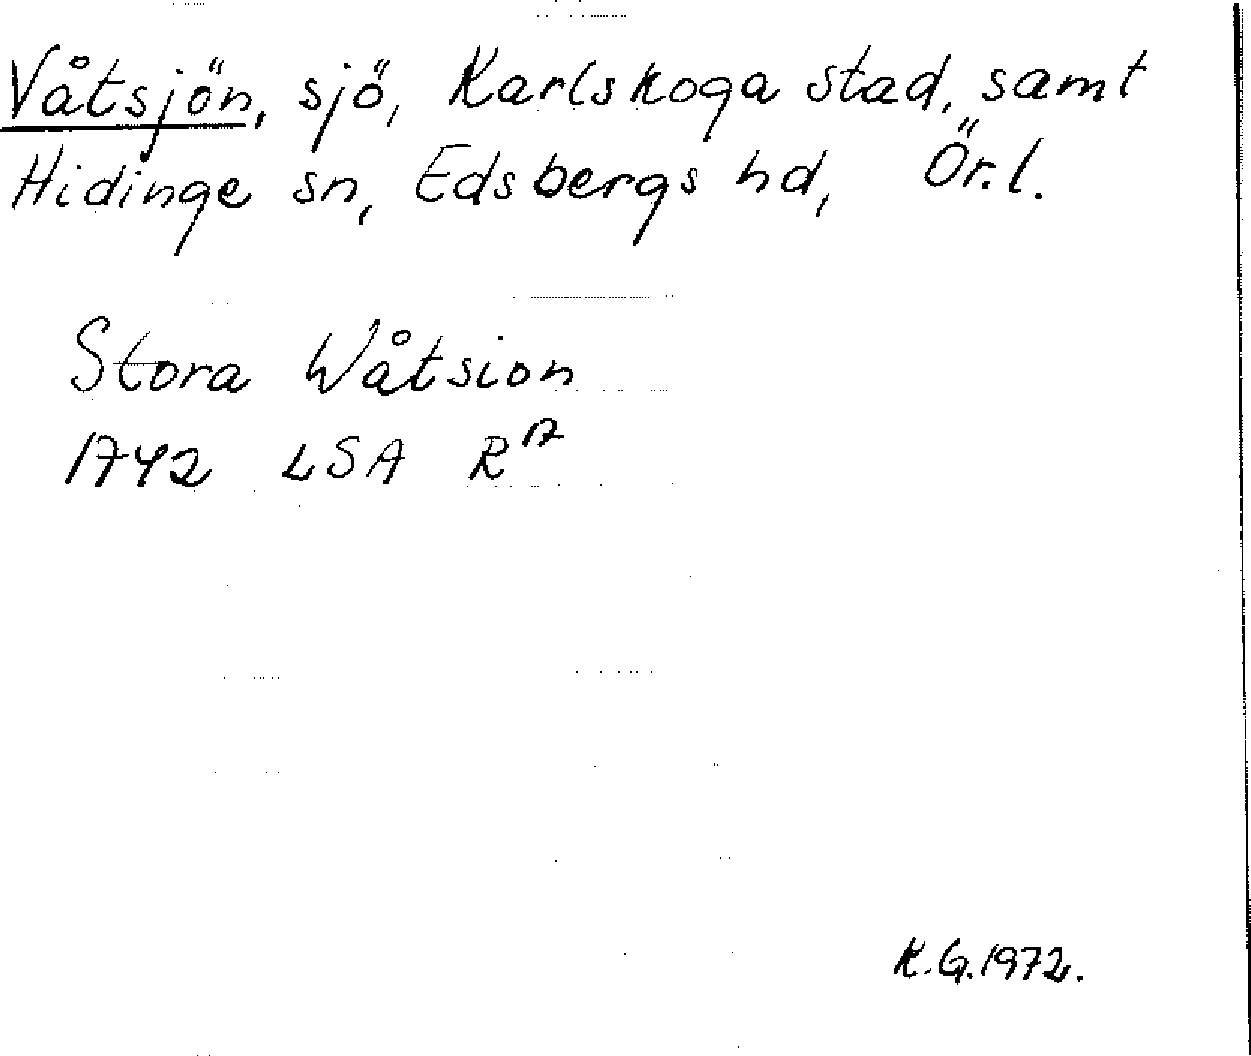 Våtsjön, sjö, Karlskoga stad, samt
Hidinge sn, Edsbergs hd, Ör.l.
Stora Wåtsion
1742 LSA R17
K.G.1972.